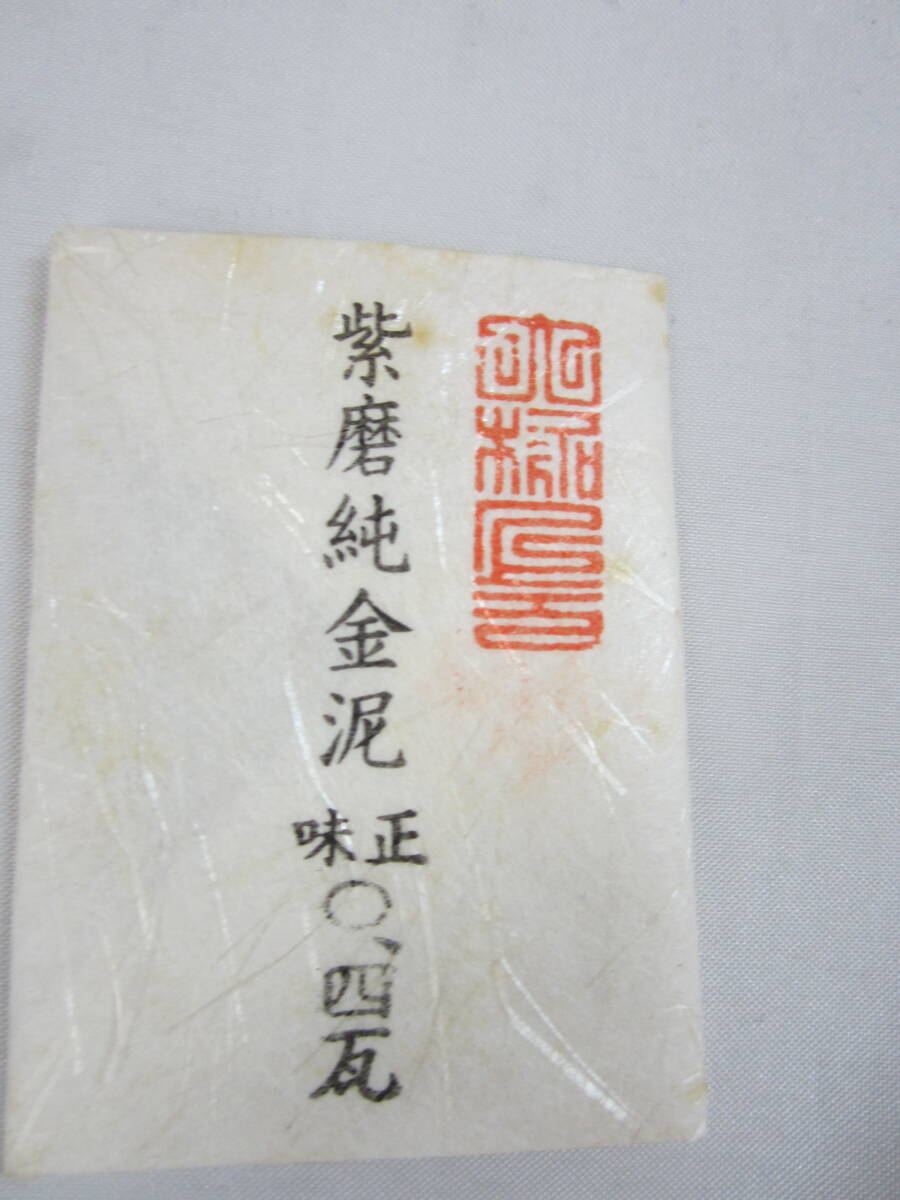 紫磨純金泥
正味
〇、四瓦